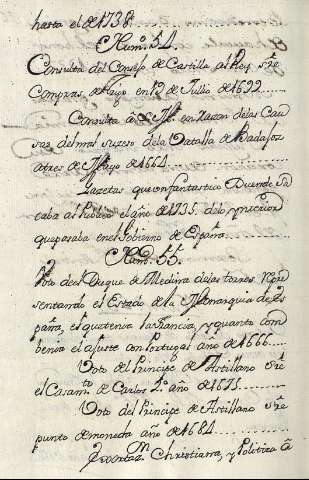 hasta el de 1738.
Num.º 54.
Consulta del Consejo de Castilla al Rey sre
Compras de Juro en 19 de Julio de 1622
Consulta a S. M. en razon de las Cau
sas del mal suzeso de la Batalla de Badajoz
a tres de Mayo de 1664
Gazetas que un fantastico Duende sa
caba al Publico el año de 1735. de lo interior
que pasaba en el Gobierno de España
Num. 55.
Voto del Duque de Medina de las torres. Repre
sentando el Estado de la Monarquia de Es
paña, el que tenia la francia, y quanto com
benia el ajuste con Portugal año de 1666
Voto del Principe de Astillano sre
el Casamto de Carlos 2.º año de 1675
Voto del Principe de Astillano sre
punto de moneda año de 1684
Christiana, y Politica a